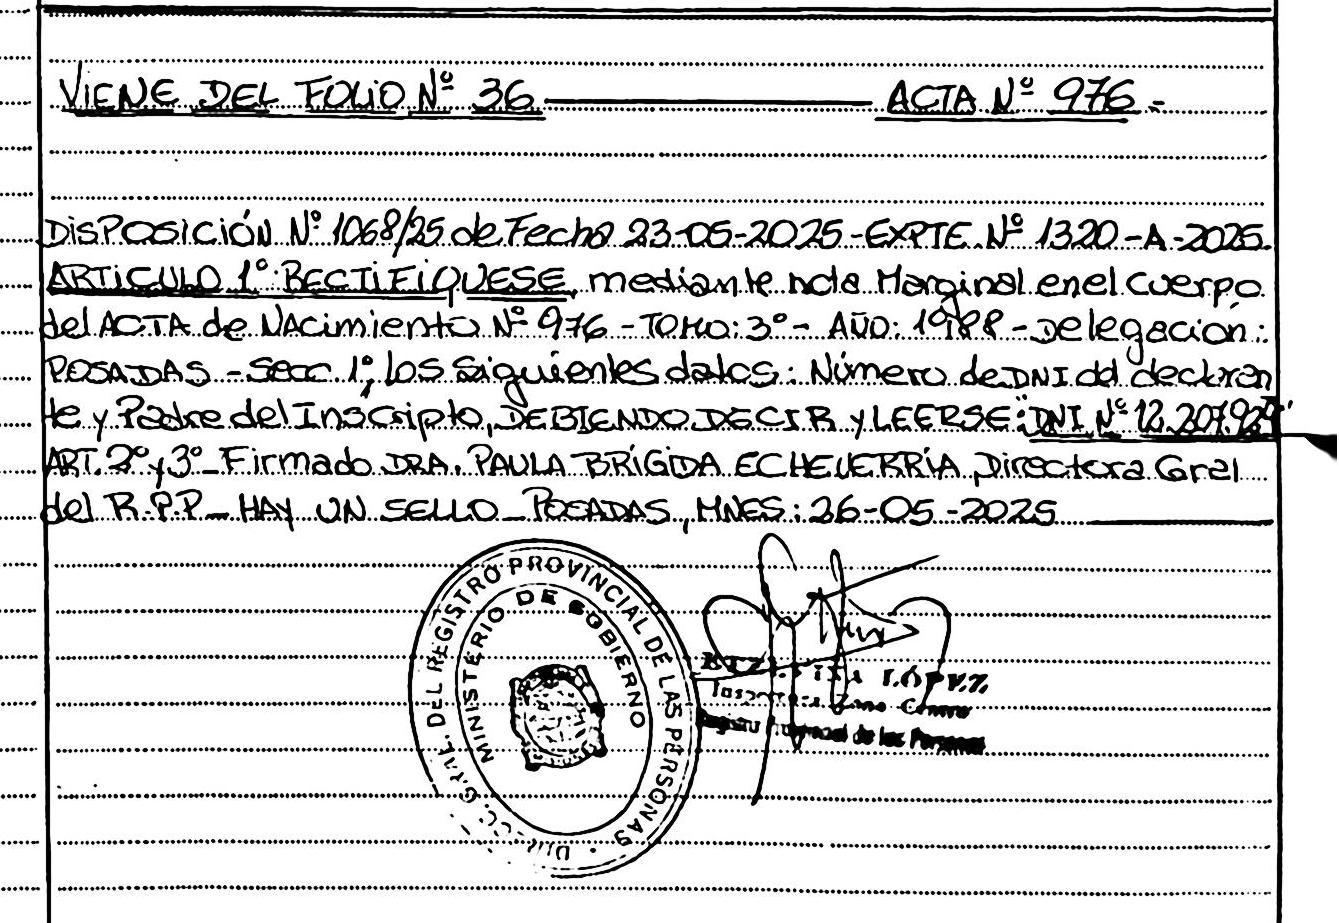 VIENE DEL FOLIO Nº 36 ACTA Nº 976.-
DISPOSICIÓN Nº 1068/25 de Fecha 23-05-2025-EXPTE. Nº 1320-A-2025.
ARTICULO 1º RECTIFIQUESE, mediante nota Marginal en el Cuerpo
del ACTA de NAcimiento Nº 976 - TOMO: 3º - AÑO: 1988 - Delegación:
POSADAS - Secc 1º, los siguientes datos: Número de DNI del declaran
te y Padre del Inscripto, DEBIENDO DECIR y LEERSE: "DNI Nº 12.207.929"
ART. 2º y 3º - Firmado DRA. PAULA BRÍGIDA ECHEVERRÍA, Directora Gral
del R.P.P - HAY UN SELLO - POSADAS, MNES: 26-05-2025
DIRECC. GRAL. DEL REGISTRO PROVINCIAL DE LAS PERSONAS
MINISTERIO DE GOBIERNO
LÓPEZ
Zona Centro
de las Personas